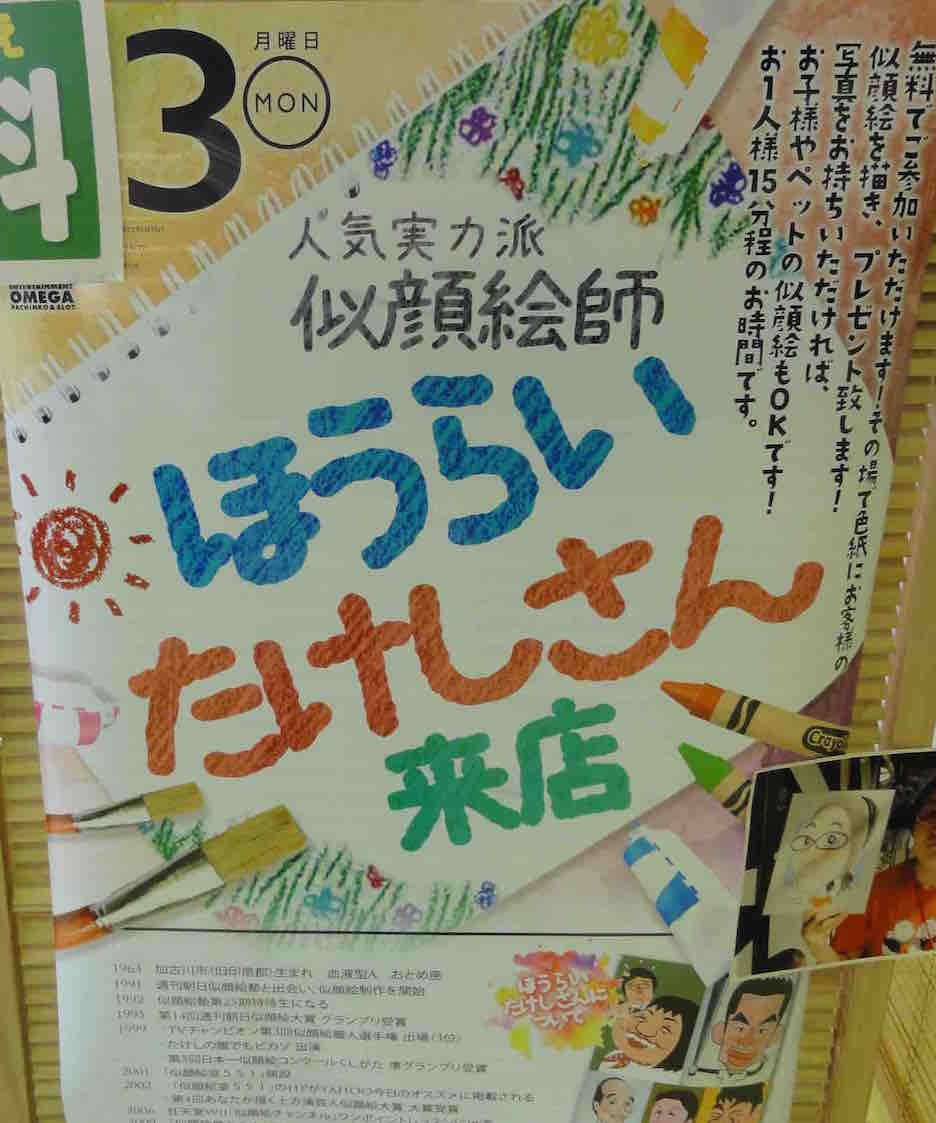 え
料
3
月曜日
MON
ENTERTAINMENT
OMEGA
PACHINKO & SLOT
無料でご参加いただけます!その場で色紙にお客様の
似顔絵を描き、プレゼント致します!
写真をお持ちいただければ、
お子様やペットの似顔絵もOKです!
お1人様15分程のお時間です。
人気実力派
似顔絵師
ほうらい
たけしさん
来店
Crayo
ほうらい
たけしさんに
ついて
1964 加古川市(旧印南郡)生まれ 血液型A おとめ座
1991 週刊朝日似顔絵塾と出会い、似顔絵制作を開始
1992 似顔絵塾第25期特待生になる
1995 第14回週刊朝日似顔絵大賞 グランプリ受賞
1999 ・TVチャンピオン第3回似顔絵職人選手権 出場(3位)
・たけしの誰でもピカソ 出演
・第8回日本一似顔絵コンクールくしがた 準グランプリ受賞
2001 「似顔絵堂551」開設
2002 ・「似顔絵堂551」のHPがYAHOO今日のオススメに掲載される
・第4回あなたが描く上方演芸人似顔絵大賞 大賞受賞
2006 任天堂Wii「似顔絵チャンネル」ワンポイントレッスン